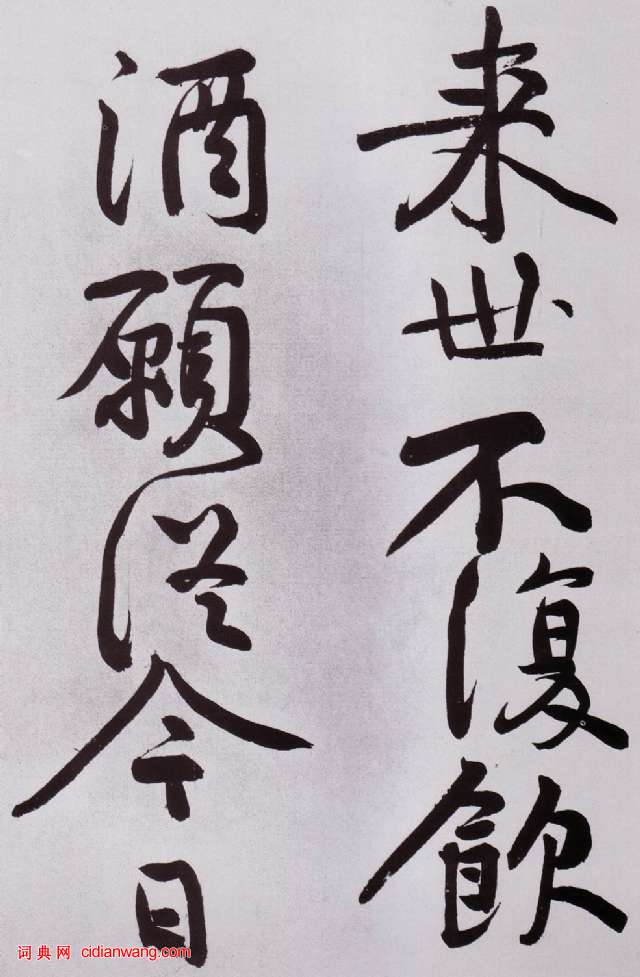 来世不復飲
酒願從今日
词典网 cidianwang.com